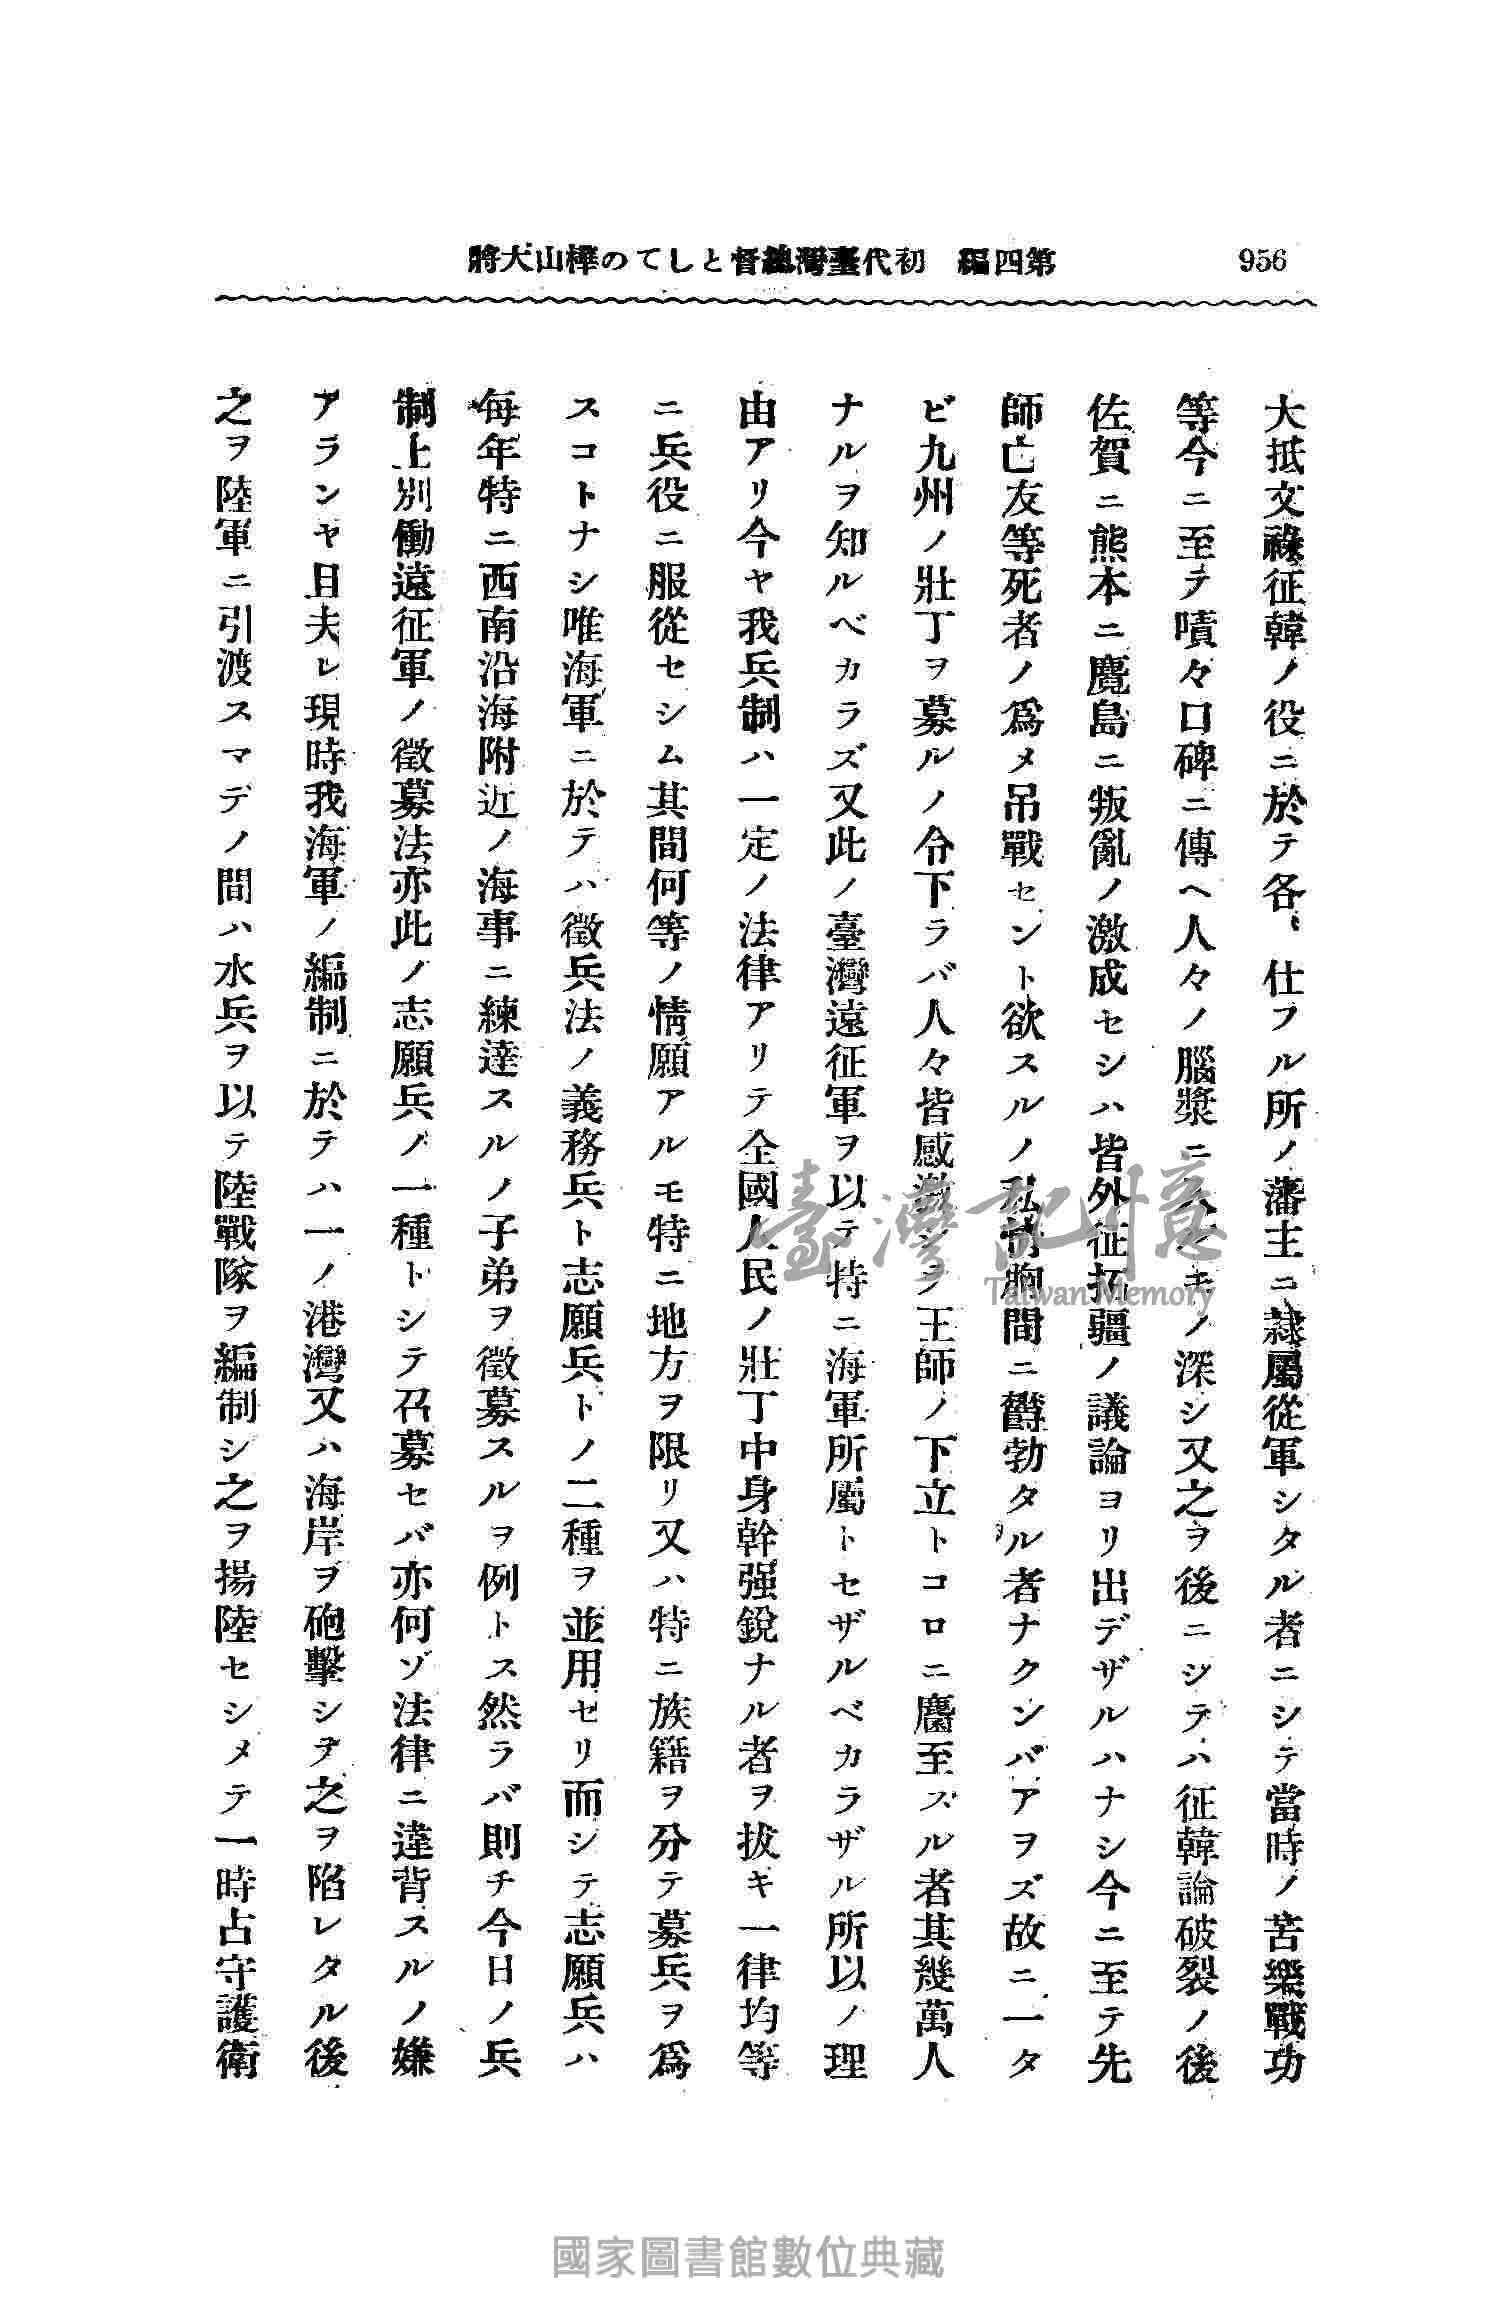 956
第四編　初代臺灣總督としての樺山大將
大抵文祿征韓ノ役ニ於テ各、仕フル所ノ藩主ニ隷屬從軍シタル者ニシテ當時ノ苦樂戰功
等今ニ至テ嘖々口碑ニ傳ヘ人々ノ腦漿ニ キノ深シ又之ヲ後ニシテハ征韓論破裂ノ後
佐賀ニ熊本ニ麑島ニ叛亂ノ激成セシハ皆外征拓疆ノ議論ヨリ出デザルハナシ今ニ至テ先
師亡友等死者ノ爲メ吊戰セント欲スルノ私情胸間ニ欝勃タル者ナクンバアヲズ故ニ一タ
ビ九州ノ壯丁ヲ募ルノ令下ラバ人々皆感激シテ王師ノ下立トコロニ麕至スル者其幾萬人
ナルヲ知ルベカラズ又此ノ臺灣遠征軍ヲ以テ特ニ海軍所屬トセザルベカラザル所以ノ理
由アリ今ヤ我兵制ハ一定ノ法律アリテ全國人民ノ壯丁中身幹强銳ナル者ヲ拔キ一律均等
ニ兵役ニ服從セシム其間何等ノ情願アルモ特ニ地方ヲ限リ又ハ特ニ族籍ヲ分テ募兵ヲ爲
スコトナシ唯海軍ニ於テハ徵兵法ノ義務兵ト志願兵トノ二種ヲ並用セリ而シテ志願兵ハ
每年特ニ西南沿海附近ノ海事ニ練達スルノ子弟ヲ徵募スルヲ例トス然ラバ則チ今日ノ兵
制上別働遠征軍ノ徵募法亦此ノ志願兵ノ一種トシテ召募セバ亦何ゾ法律ニ違背スルノ嫌
アランヤ且夫レ現時我海軍ノ編制ニ於テハ一ノ港灣又ハ海岸ヲ砲擊シテ之ヲ陷レタル後
之ヲ陸軍ニ引渡スマデノ間ハ水兵ヲ以テ陸戰隊ヲ編制シ之ヲ揚陸セシメテ一時占守護衛
臺灣記憶
Taiwan Memory
國家圖書館數位典藏